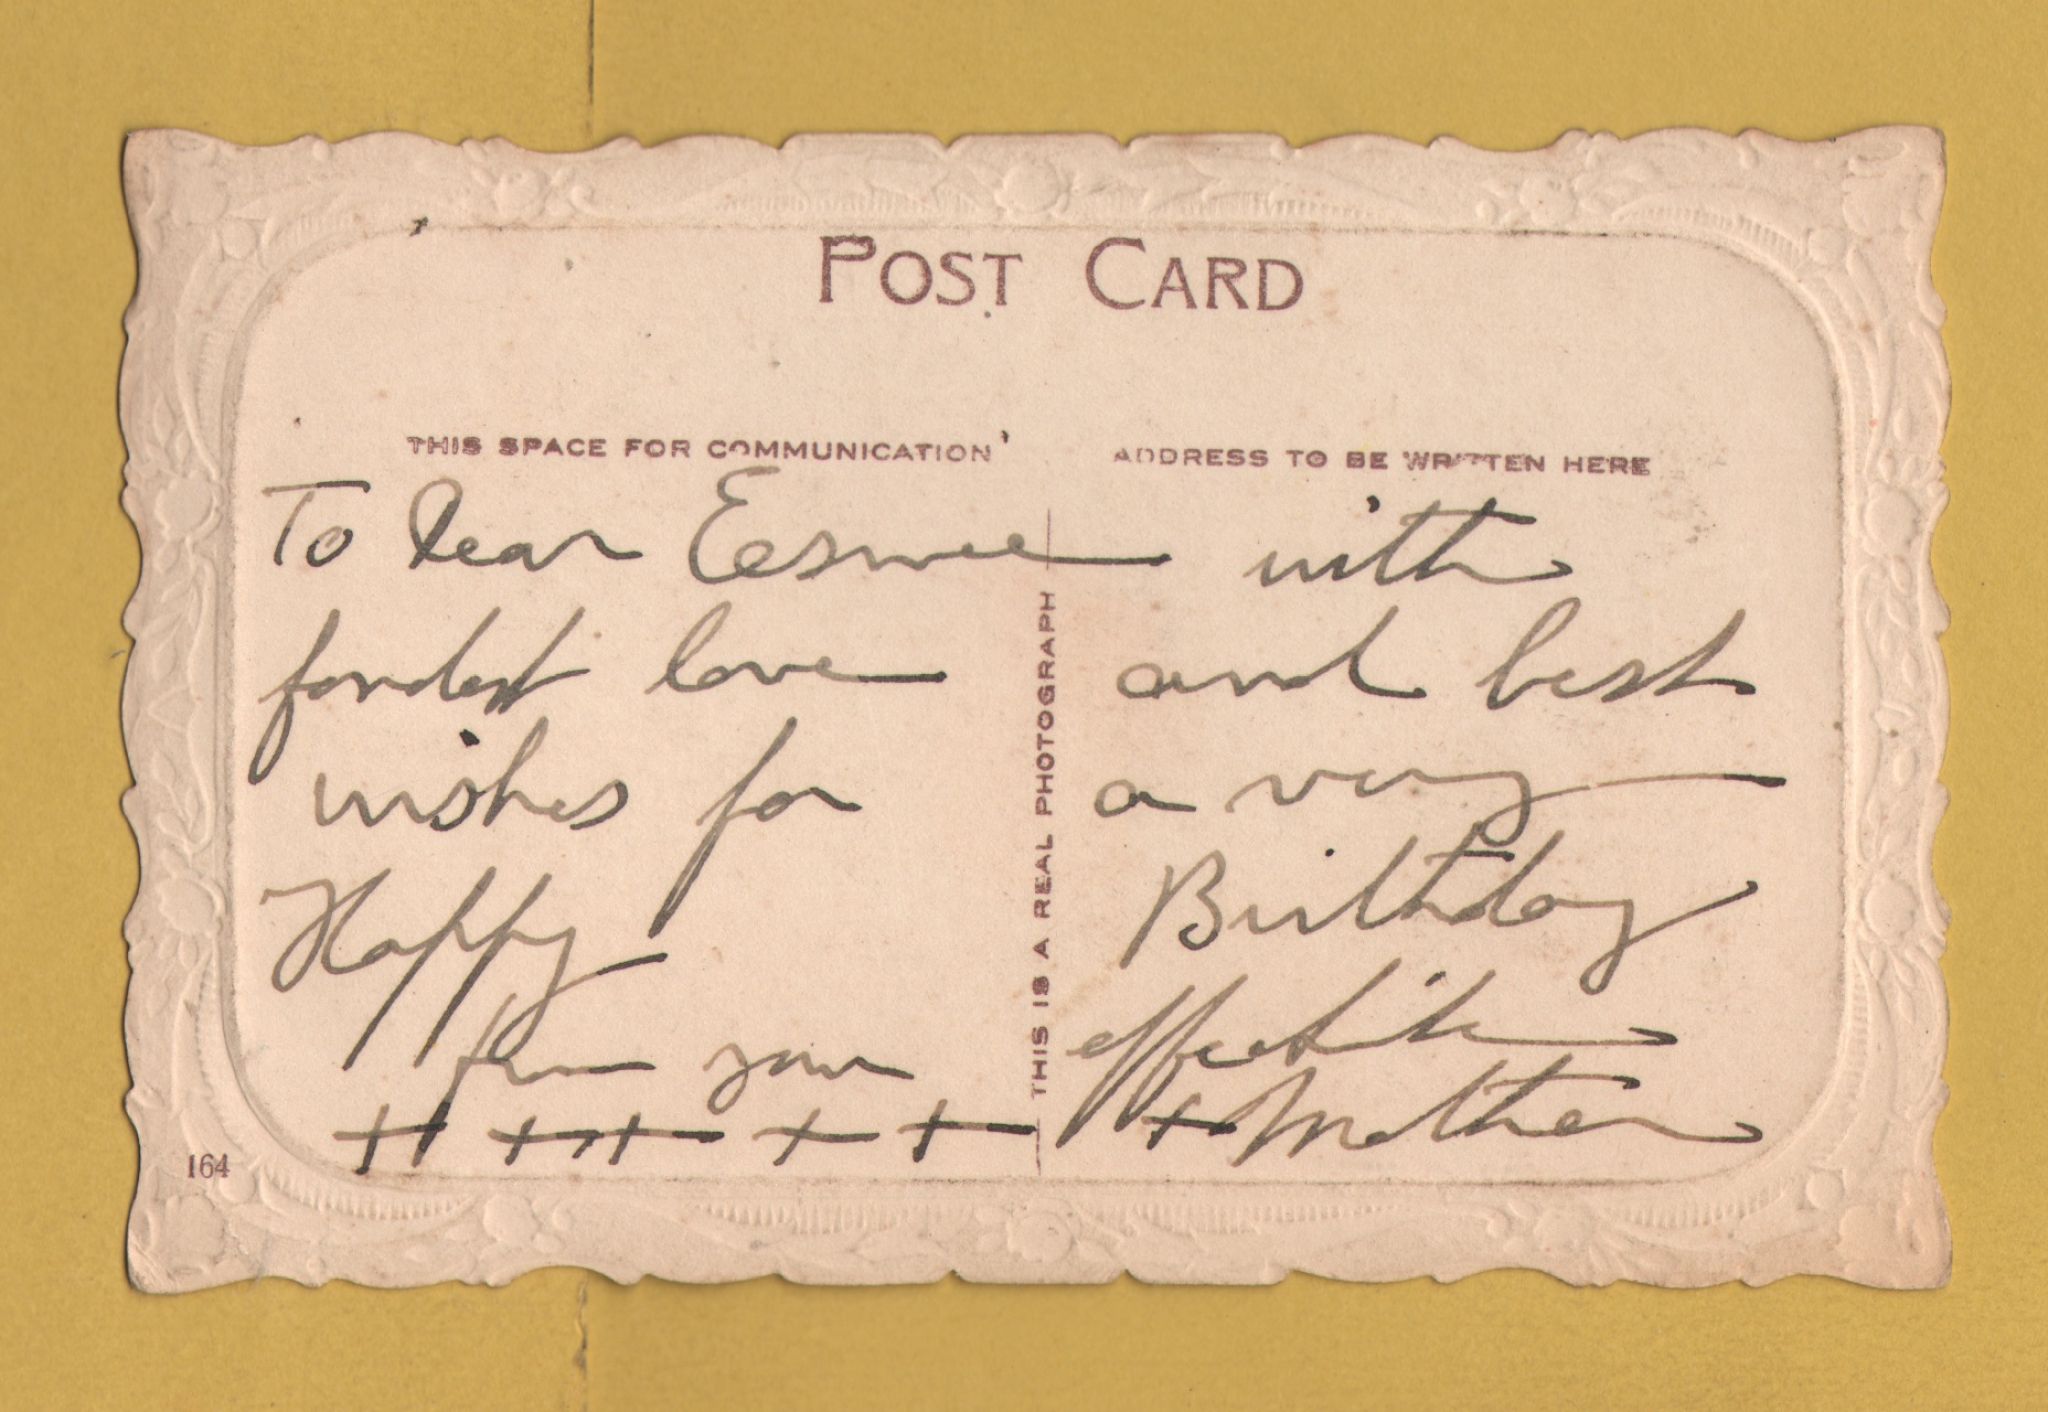 POST CARD
THIS SPACE FOR COMMUNICATION
ADDRESS TO BE WRITTEN HERE
To Dear Eesmee with
fondest love and best
wishes for a very
Happy Birthday
from your
Mother
THIS IS A REAL PHOTOGRAPH
164